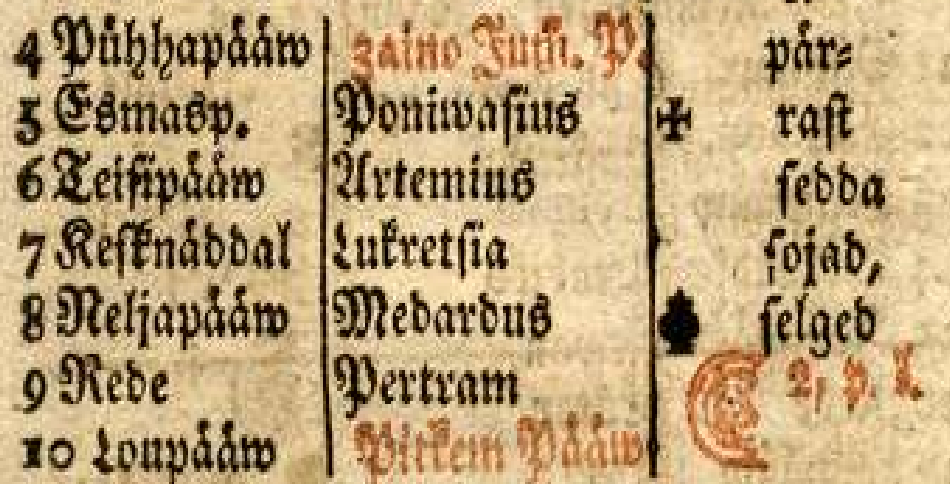 4 Pühhapääw 3aino Juth. P. pär⸗
5 Esmasp. Poniwasius ✠ rast
6 Teisipääw Artemius sedda
7 Kesknäddal Lukretsia sojad,
8 Neljapääw Medardus selged
9 Rede Pertram 2, p. l.
10 Loupääw Pitkem Pääw